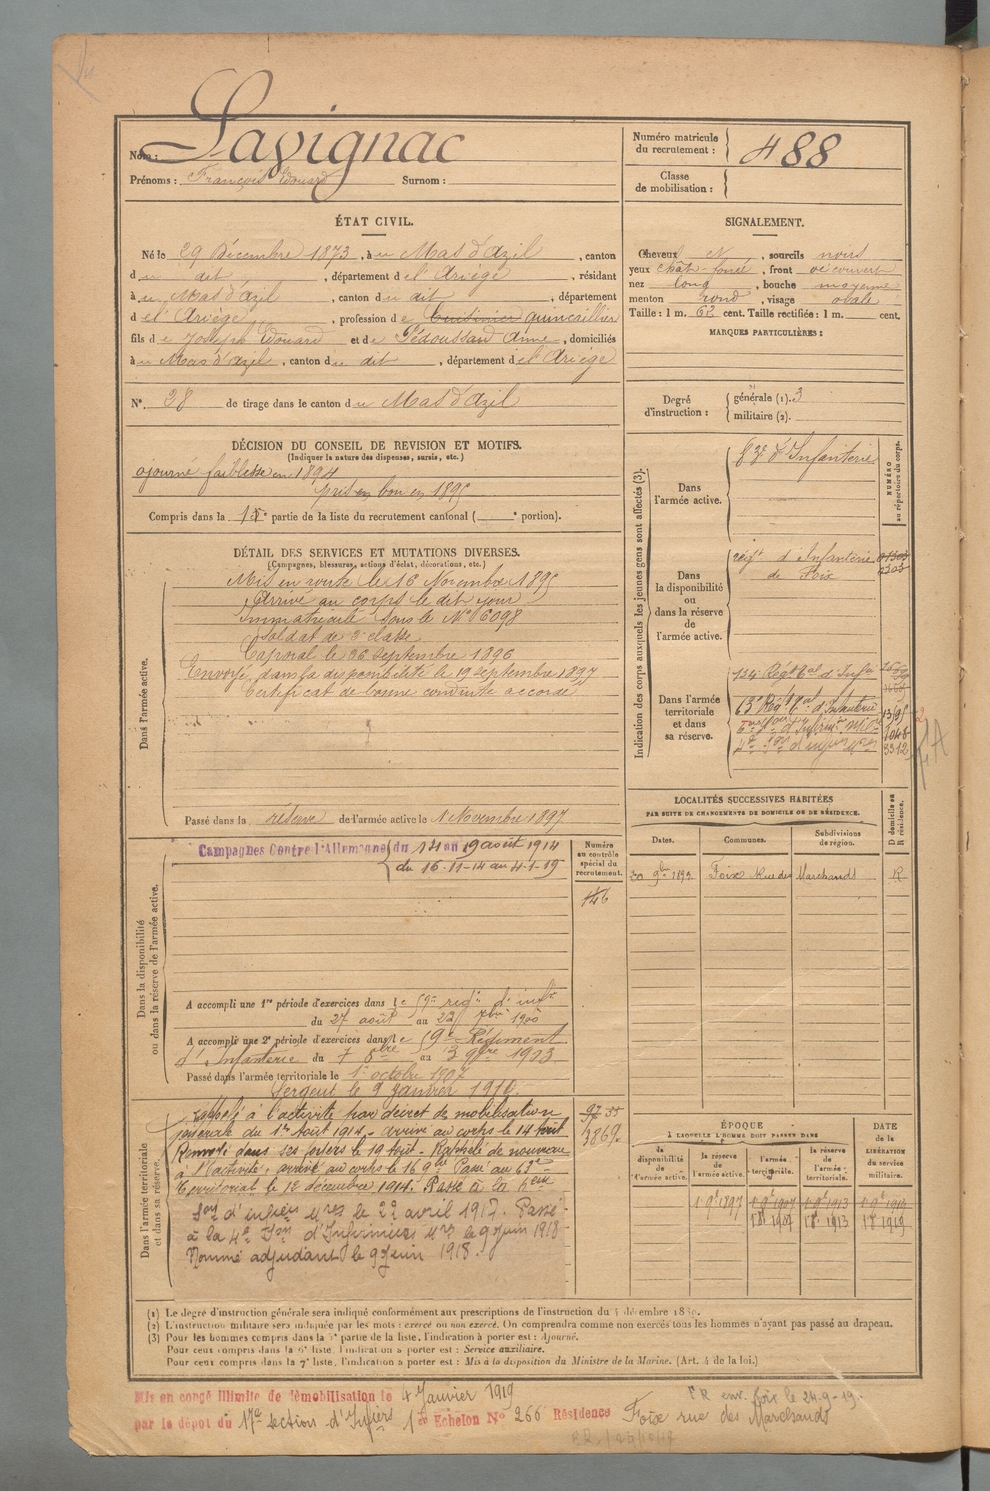 Nom : Lavignac
Prénoms : François Edouard Surnom :
Numéro matricule
du recrutement : 488
Classe
de mobilisation :
ÉTAT CIVIL.
Né le 29 Décembre 1873, à u Mas d'Azil, canton
du dit, département de l'Ariège, résidant
à u Mas d'Azil, canton du dit, département
de l'Ariège, profession de quincaillier
fils de Joseph Edouard et de Pédoussau Anne, domiciliés
à u Mas d'azil, canton du dit, département de l'Ariège
N° 28 de tirage dans le canton du Mas d'Azil
SIGNALEMENT.
Cheveux et, sourcils noirs
yeux chât. foncé, front découvert
nez long, bouche moyenne
menton rond, visage ovale
Taille : 1 m. 62 cent. Taille rectifiée : 1 m. cent.
MARQUES PARTICULIÈRES :
Degré
d'instruction :
générale (1). 3
militaire (2).
DÉCISION DU CONSEIL DE REVISION ET MOTIFS.
(Indiquer la nature des dispenses, sursis, etc.)
ajourné faiblesse en 1894
pris en bon en 1895
Compris dans la 1e partie de la liste du recrutement cantonal ( e portion).
DÉTAIL DES SERVICES ET MUTATIONS DIVERSES.
(Campagnes, blessures, actions d'éclat, décorations, etc.)
Dans l'armée active.
Mis en route le 16 Novembre 1895
Arrivé au corps le dit jour
Immatriculé sous le N° 6098
Soldat de 2e classe
Caporal le 26 septembre 1896
Envoyé dans la disponibilité le 19 septembre 1897
Certificat de bonne conduite accordé
Passé dans la réserve de l'armée active le 1 Novembre 1897
Indication des corps auxquels les jeunes gens sont affectés (3).
NUMÉRO
au répertoire du corps.
Dans
l'armée active.
d'Infanterie
Dans
la disponibilité
ou
dans la réserve
de
l'armée active.
regt d'Infanterie
de Foix
Dans l'armée
territoriale
et dans
sa réserve.
134e Regt tal d'Infie
63e Regt tal d'Infanterie
1048
3312
LOCALITÉS SUCCESSIVES HABITÉES
PAR SUITE DE CHANGEMENTS DE DOMICILE OU DE RÉSIDENCE.
D domicile ou
R résidence.
Dates. Communes. Subdivisions
de région.
30 9bre 1897 Foix Rue des Marchands R
Dans la disponibilité
ou dans la réserve de l'armée active.
Numéro
au contrôle
spécial du
recrutement.
146
Campagnes Contre l'Allemagne du 14 au 19 août 1914
du 16-11-14 au 4-1-19
A accompli une 1re période d'exercices dans le 59e regt d'infie
du 27 août au 23 7bre 1900
A accompli une 2e période d'exercices dans le 59e Régiment
d'Infanterie du 7 8bre au 3 9bre 1903
Passé dans l'armée territoriale le 1er octobre 1907
Sergent le 9 Janvier 1910
Dans l'armée territoriale
et dans sa réserve.
rappelé à l'activité par décret de mobilisation
générale du 1er Août 1914. Arrivé au corps le 14 Août
Renvoyé dans ses foyers le 19 Août. Rappelé de nouveau
à l'activité. arrivé au corps le 16 9bre Passé au 63e
Territorial le 12 décembre 1914. Passé à la 6e
Son d'infiers Mres le 22 avril 1917. Passé
à la 4e Son d'Infirmiers Mres le 9 juin 1918
Nommé adjudant le 9 juin 1918.
3869
ÉPOQUE
À LAQUELLE L'HOMME DOIT PASSER DANS
DATE
de la
LIBÉRATION
du service
militaire.
la
disponibilité
de l'armée active.
la réserve
de
l'armée active.
l'armée
territoriale.
la réserve
de
l'armée
territoriale.
1 9bre 1897 1 9bre 1907 1 9bre 1913 1 9bre 1919
1 8bre 1907 1 8bre 1913 1 8bre 1919
(1) Le degré d'instruction générale sera indiqué conformément aux prescriptions de l'instruction du 4 décembre 1889.
(2) L'instruction militaire sera indiquée par les mots : exercé ou non exercé. On comprendra comme non exercés tous les hommes n'ayant pas passé au drapeau.
(3) Pour les hommes compris dans la 5e partie de la liste, l'indication à porter est : Ajourné.
Pour ceux compris dans la 6e liste, l'indication à porter est : Service auxiliaire.
Pour ceux compris dans la 7e liste, l'indication à porter est : Mis à la disposition du Ministre de la Marine. (Art. 4 de la loi.)
Mis en congé illimité de démobilisation le 4 Janvier 1919
par le dépôt du 17e section d'Infiers 1er Echelon N° 266 Résidence Foix rue des Marchands
F R env. Foix le 24-9-19